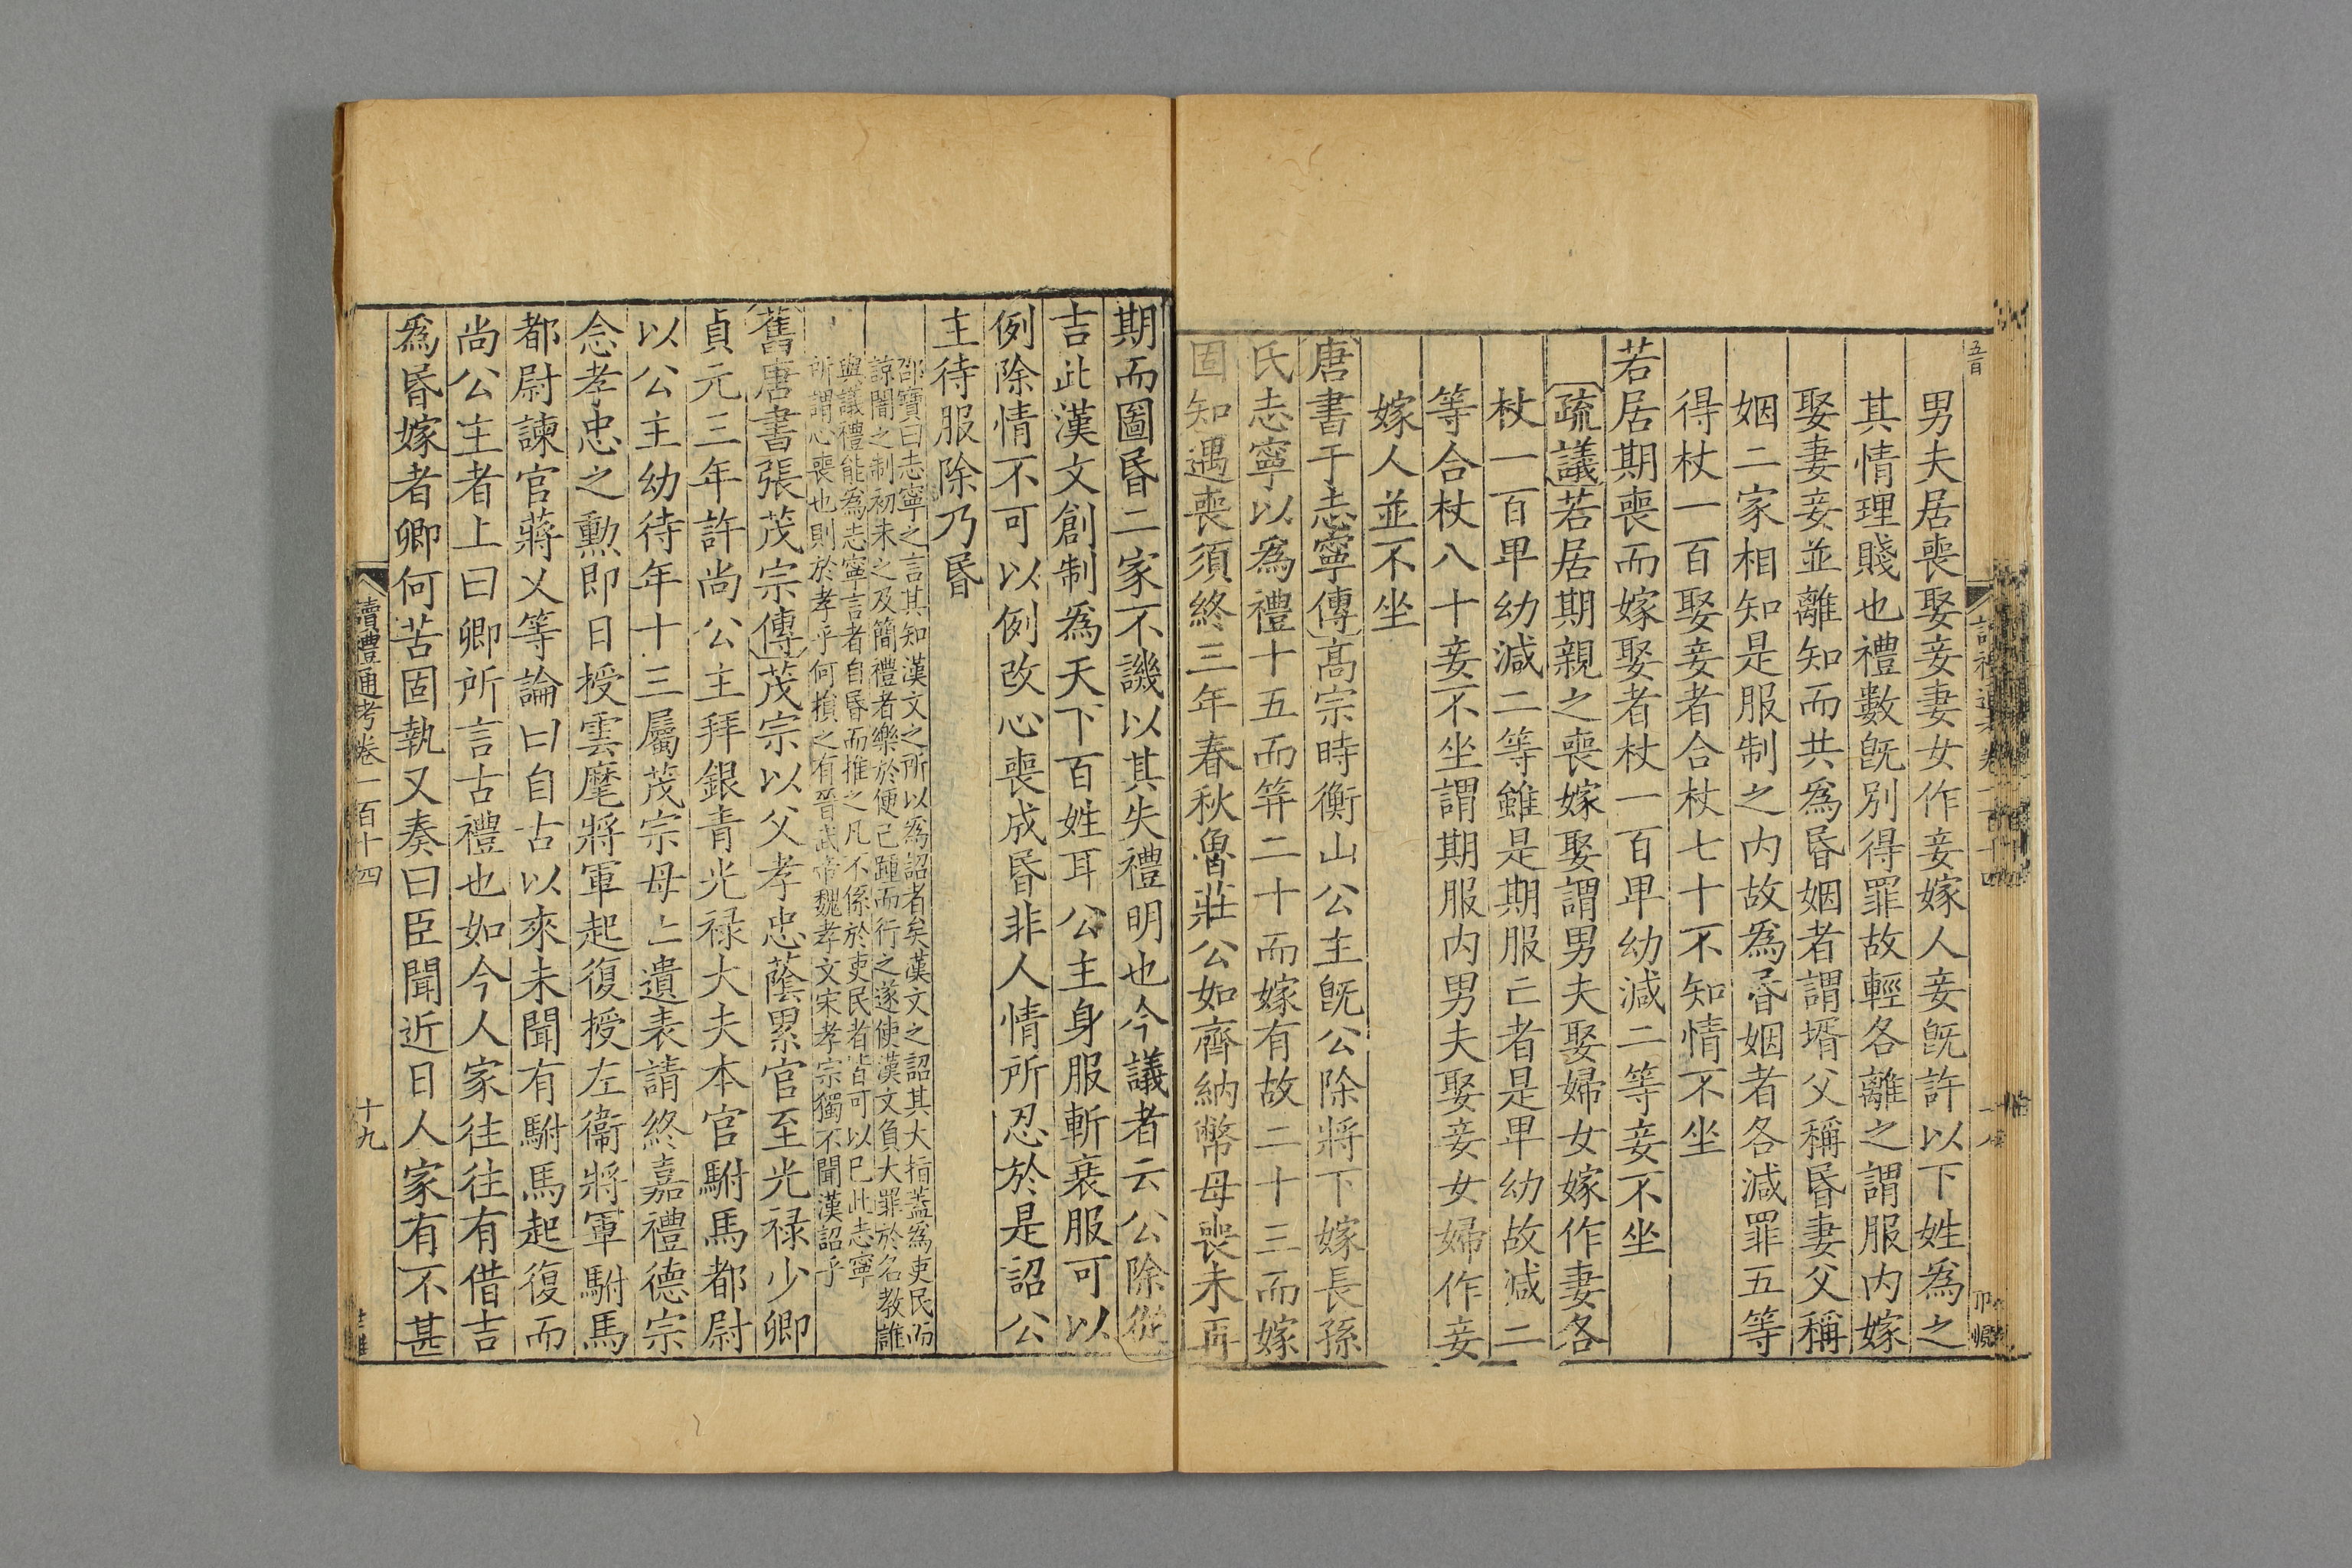 男夫居喪娶妾妻女作妾嫁人妾旣許以下姓爲之
其情理賤也禮數旣別得罪故輕各離之謂服内嫁
娶妻妾並離知而共爲昏姻者謂壻父稱昏妻父稱
姻二家相知是服制之内故爲昏姻者各減罪五等
得杖一百娶妾者合杖七十不知情不坐
若居期喪而嫁娶者杖一百甲幼減二等妾不坐
疏議若居期親之喪嫁娶謂男夫娶婦女嫁作妻各
杖一百甲幼減二等雖是期服亡者是甲幼故減二
等合杖八十妾不坐謂期服内男夫娶妾女婦作妾
嫁人並不坐
唐書于志寧傳高宗時衡山公主旣公除將下嫁長孫
氏志寧以爲禮十五而笄二十而嫁有故二十三而嫁
固知遇喪須終三年春秋魯莊公如齊納幣母喪未再
期而圖昏二家不譏以其失禮明也今議者云公除從
吉此漢文創制爲天下百姓耳公主身服斬衰服可以
例除情不可以例改心喪成昏非人情所忍於是詔公
主待服除乃昏
邵寶曰志寧之言其知漢文之所以爲詔者矣漢文之詔其大指蓋爲吏民而
諒闇之制初未之及簡禮者樂於便己踵而行之遂使漢文負大罪於名教誰
與議禮能爲志寧言者自昏而推之凡不係於吏民者皆可以已此志寧
所謂心喪也則於孝乎何損之有晉武帝魏孝文宋孝宗獨不聞漢詔乎
舊唐書張茂宗傳茂宗以父孝忠蔭累官至光禄少卿
貞元三年許尚公主拜銀青光禄大夫本官駙馬都尉
以公主幼待年十三屬茂宗母亡遺表請終嘉禮德宗
念孝忠之勳即日授雲麾將軍起復授左衞將軍駙馬
都尉諫官蔣乂等論曰自古以來未聞有駙馬起復而
尚公主者上曰卿所言古禮也如今人家往往有借吉
爲昏嫁者卿何苦固執又奏曰臣聞近日人家有不甚
讀禮通考卷一百十四
十九